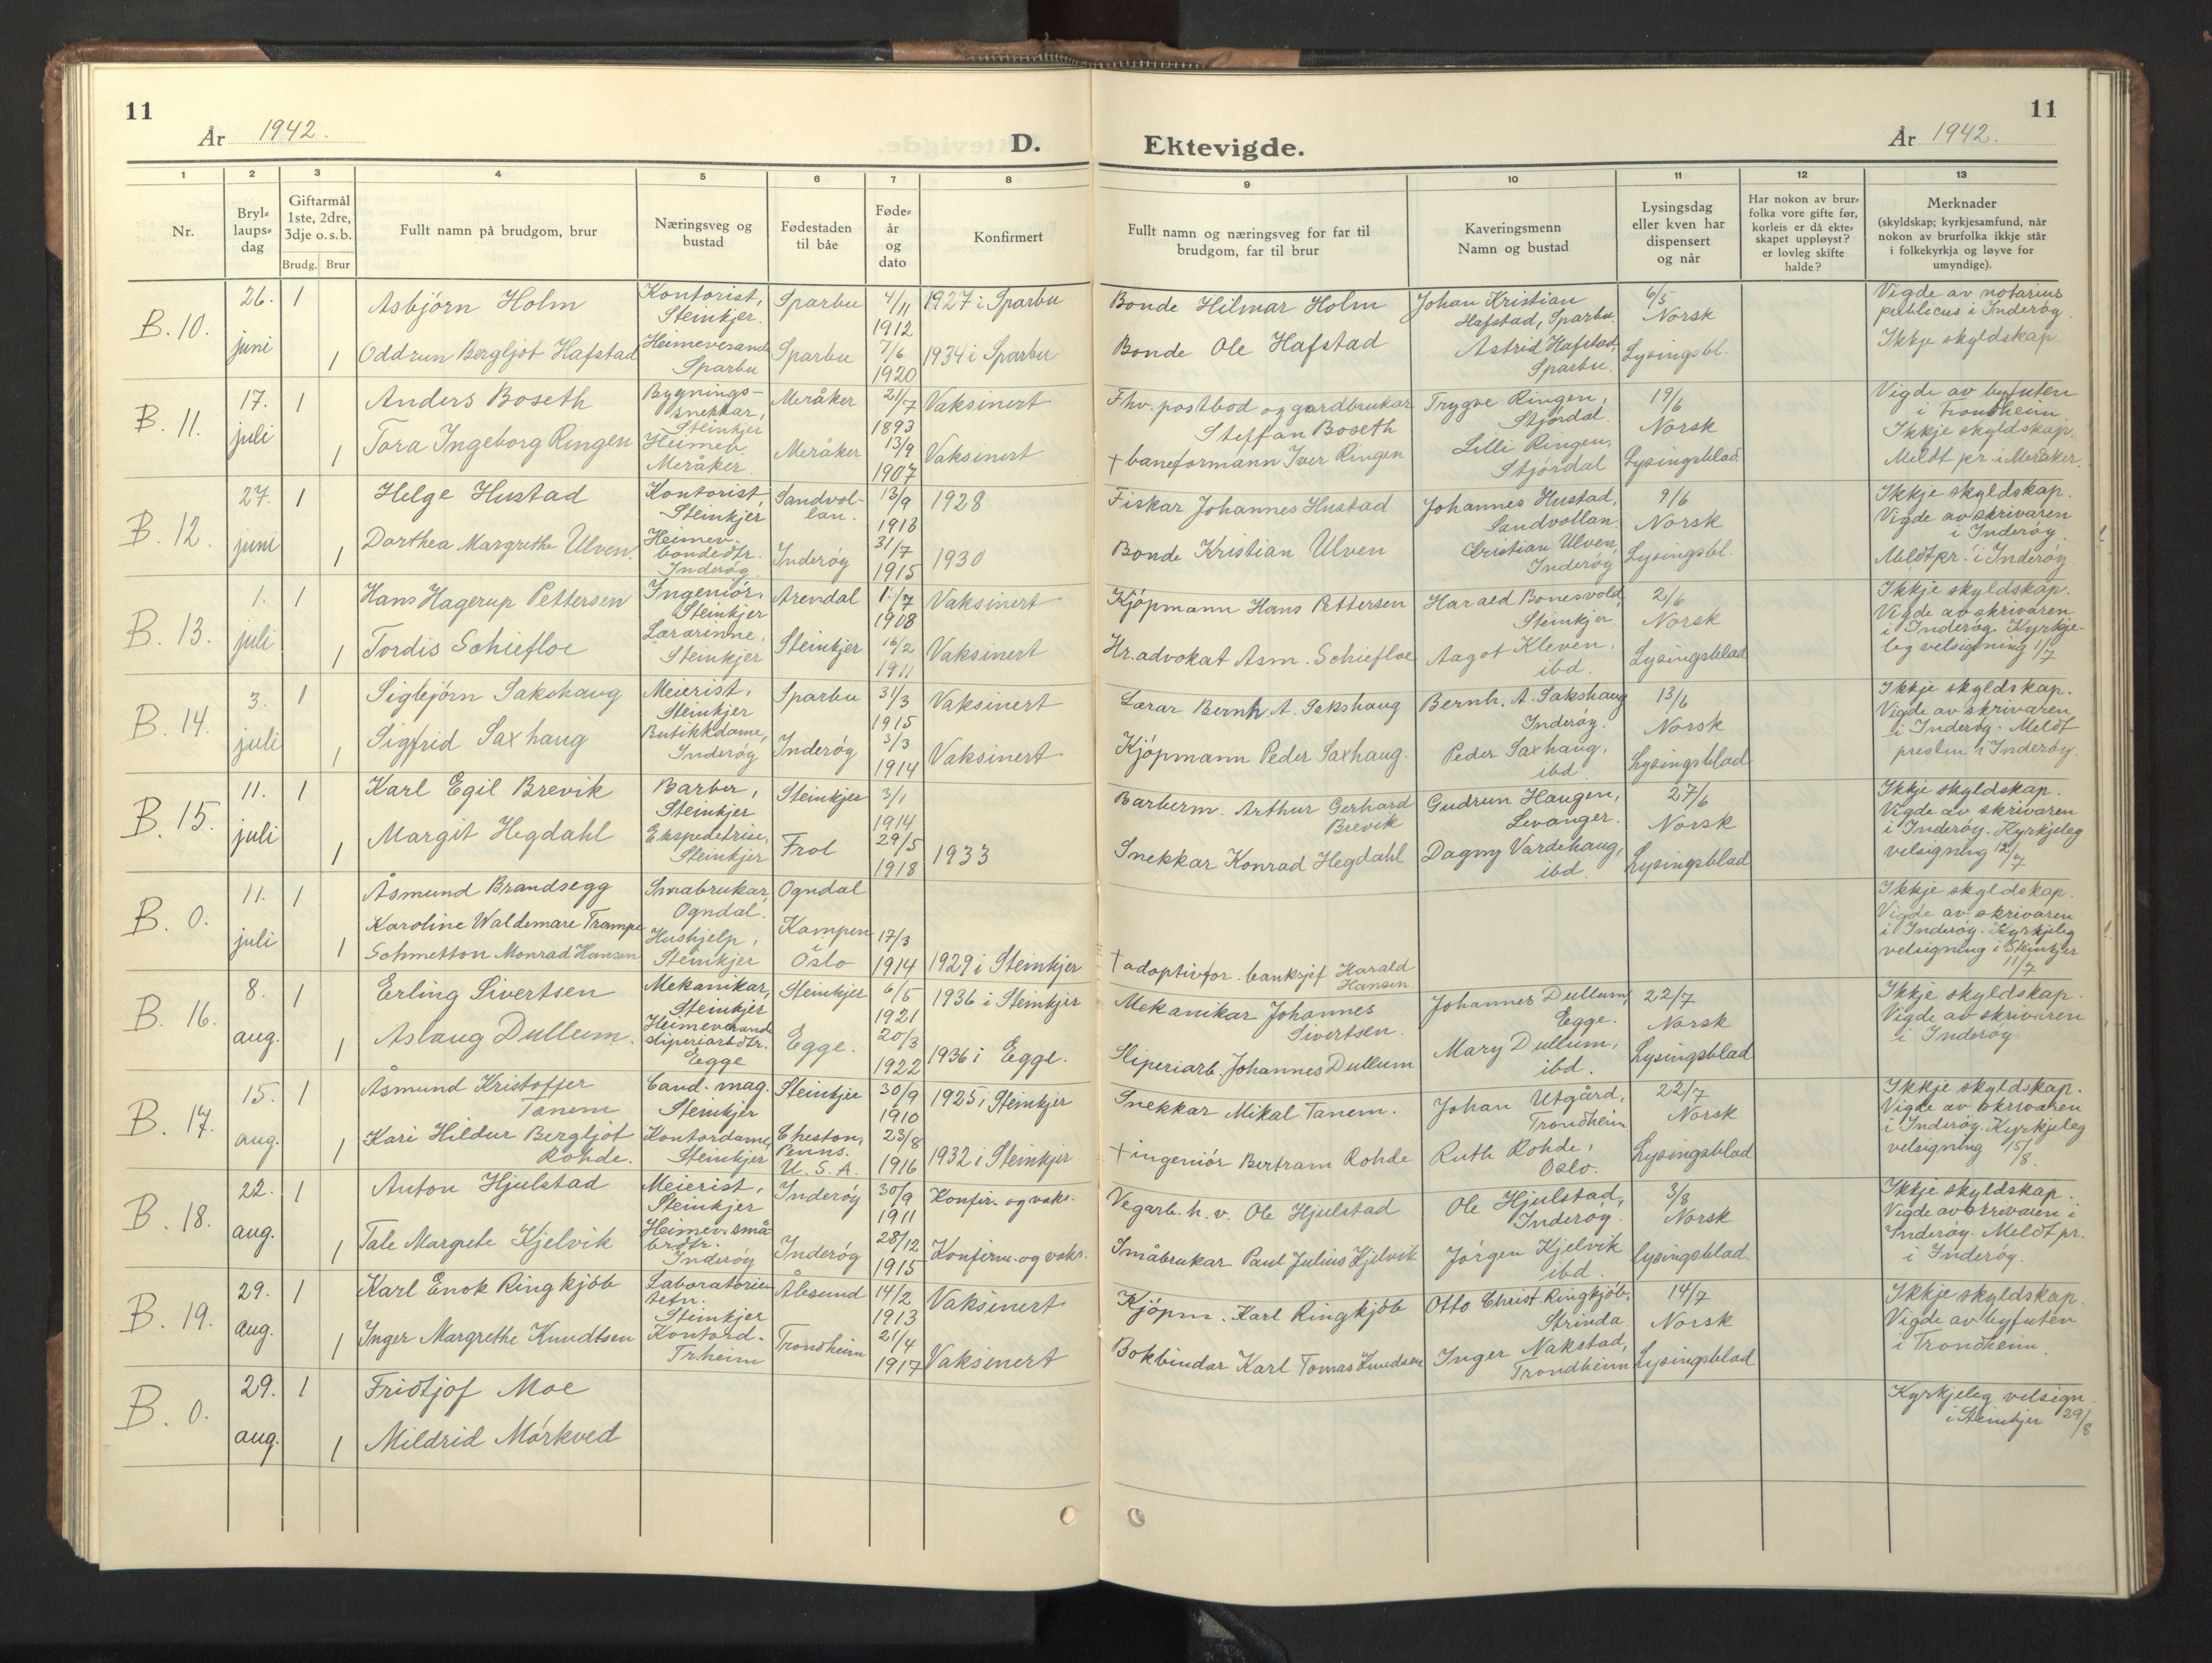 11
År 1942.
D.
1 2 3 4 5 6 7 8
Nr.
Bryl-
laups-
dag
Giftarmål
1ste, 2dre,
3dje o. s. b.
Brudg. Brur
Fullt namn på brudgom, brur
Næringsveg og
bustad
Fødestaden
til båe
Føde-
år
og
dato
Konfirmert
B. 10.
26.
juni
1
Asbjørn Holm
Kontorist,
Steinkjer.
Sparbu
4/11
1912
1927 i Sparbu
1
Oddrun Bergljot Hafstad
Heimeverand
Sparbu
Sparbu
7/6
1920
1934 i Sparbu
B. 11.
17.
juli
1
Anders Boseth
Bygnings-
snekkar,
Steinkjer
Meråker
21/7
1893
Vaksinert
1
Tora Ingeborg Ringen
Heimev.
Meråker.
Meråker
13/9
1907
Vaksinert
B. 12.
27.
juni
1
Helge Hustad
Kontorist,
Steinkjer
Sandvol-
lan.
13/9
1913
1928
1
Dorthea Margrethe Ulven.
Heimev.
bondedtr.
Inderøy.
Inderøy
31/7
1915
1930
B. 13.
1.
juli
1
Hans Hagerup Pettersen
Ingeniør,
Steinkjer
Arendal
1/7
1908
Vaksinert
1
Tordis Schiefloe
Lærarinne,
Steinkjer
Steinkjer
16/2
1911
Vaksinert
B. 14.
3.
juli
1
Sigbjørn Sakshaug
Meierist,
Steinkjer
Sparbu
31/3
1915
Vaksinert
1
Sigfrid Saxhaug
Butikkdame,
Inderøy
Inderøy
3/3
1914
Vaksinert
B. 15.
11.
juli
1
Karl Egil Brevik
Barber,
Steinkjer
Steinkjer
3/1
1914
1
Margit Hegdahl
Ekspeditrise,
Steinkjer
Frol
29/5
1918
1933
B. 0.
11.
juli
1
Åsmund Brandsegg
Småbrukar,
Ogndal.
Ogndal
1
Karoline Waldemare Trampe
Schmetton Monrad Hansen
Hushjelp,
Steinkjer
Kampen
i
Oslo
17/3
1914
1929 i Steinkjer
B. 16.
8.
aug.
1
Erling Sivertsen
Mekanikar,
Steinkjer
Steinkjer
6/5
1921
1936 i Steinkjer
1
Aslaug Dullum.
Heimeverande
sliperiarb.dtr.
Egge
Egge.
20/3
1922
1936 i Egge.
B. 17.
15.
aug.
1
Åsmund Kristoffer
Tanem
Cand. mag.
Steinkjer
Steinkjer
30/9
1910
1925 i Steinkjer
1
Kari Hildur Bergljot
Rohde.
Kontordame,
Steinkjer
Cheston,
Penns.
U.S.A.
23/8
1916
1932 i Steinkjer
B. 18.
22.
aug.
1
Anton Hjulstad
Meierist,
Steinkjer
Inderøy
30/9
1911
Konfir. og vaks.
1
Tale Margrete Kjelvik
Heimev. små
br.dtr.
Inderøy
Inderøy
28/12
1915
Konfirm. og vaks.
B. 19.
29.
aug.
1
Karl Enok Ringkjøb
Laboratorie
Steinkjer
Ålesund
14/2
1913
Vaksinert
1
Inger Margrethe Knudtsen
Kontord.
Tr.heim
Trondheim
21/4
1917
Vaksinert
B. 0.
29.
aug.
1
Fridtjof Moe
1
Mildrid Mørkved
11
Ektevigde.
År 1942.
9 10 11 12 13
Fullt namn og næringsveg for far til
brudgom, far til brur
Kaveringsmenn
Namn og bustad
Lysingsdag
eller kven har
dispensert
og når
Har nokon av brur-
folka vore gifte før,
korleis er då ekte-
skapet uppløyst?
er lovleg skifte
halde?
Merknader
(skyldskap; kyrkjesamfund, når
nokon av brurfolka ikkje står
i folkekyrkja og løyve for
umyndige).
Bonde Hilmar Holm
Bonde Ole Hafstad
Johan Kristian
Hafstad, Sparbu.
Astrid Hafstad,
Sparbu.
6/5
Norsk
Lysingsbl.
Vigde av notarius
publicus i Inderøy.
Ikkje skyldskap.
Fhv. postbod og gardbrukar
Steffan Boseth
† baneformann Iver Ringen
Trygve Ringen,
Stjørdal.
Lilli Ringen,
Stjørdal
19/6
Norsk
Lysingsblad.
Vigde av byfuten
i Trondheim.
Ikkje skyldskap.
Meldt pr. i Meråker.
Fiskar Johannes Hustad
Bonde Kristian Ulven
Johannes Hustad,
Sandvollan.
Kristian Ulven,
Inderøy
9/6
Norsk
Lysingsbl.
Ikkje skyldskap.
Vigde av skrivaren
i Inderøy.
Meldt pr. i Inderøy
Kjøpmann Hans Pettersen
Hr. advokat Asm. Schiefloe
Harald Bonesvold,
Steinkjer
Aagot Kleven,
ibd.
2/6
Norsk
Lysingsblad
Ikkje skyldskap.
Vigde av skrivaren
i Inderøy. Kyrkje-
leg velsigning 1/7
Lærar Bernh. A. Sakshaug
Kjøpmann Peder Saxhaug.
Bernh. A. Sakshaug
Inderøy.
Peder Saxhaug,
ibd.
13/6
Norsk
Lysingsblad
Ikkje skyldskap.
Vigde av skrivaren
i Inderøy. Meldt
presten i Inderøy.
Barberm. Arthur Gerhard
Brevik
Snekkar Konrad Hegdahl
Gudrun Haugen,
Levanger.
Dagny Vardehaug,
ibd.
27/6
Norsk
Lysingsblad
Ikkje skyldskap.
Vigde av skrivaren
i Inderøy. Kyrkjeleg
velsigning 12/7
† adoptivfor. banksjef Harald
Hansen.
Ikkje skyldskap.
Vigde av skrivaren
i Inderøy. Kyrkjeleg
velsigning i Steinkjer
11/7
Mekanikar Johannes
Sivertsen.
Sliperiarb. Johannes Dullum
Johannes Dullum,
Egge.
Mary Dullum,
ibd.
22/7
Norsk
Lysingsblad
Ikkje skyldskap.
Vigde av skrivaren
i Inderøy.
Snekkar Mikal Tanem.
† ingeniør Bertram Rohde
Johan Utgård,
Trondheim
Ruth Rohde,
Oslo.
22/7
Norsk
Lysingsblad
Ikkje skyldskap.
Vigde av skrivaren
i Inderøy. Kyrkjeleg
velsigning 15/8.
Vegarb. h. v. Ole Hjulstad
Småbrukar Paul Julius Kjelvik
Ole Hjulstad,
Inderøy.
Jørgen Kjelvik
ibd.
3/8
Norsk
Lysingsblad.
Ikkje skyldskap.
Vigde av skrivaren i
Inderøy. Meldt pr.
i Inderøy.
Kjøpm. Karl Ringkjøb
Bokbindar Karl Tomas Knudsen
Otto Christ. Ringkjøb,
Strinda.
Inger Nakstad,
Trondheim
14/7
Norsk
Lysingsblad
Ikkje skyldskap.
Vigde av byfuten
i Trondheim.
Kyrkjeleg velsign.
i Steinkjer 29/8